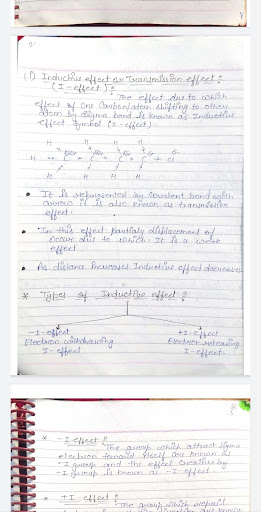 (1) Inductive effect or Transmission effect :
(I-effect) :
The effect due to which
effect of one carbon/atom shifting to other
atom by sigma bond is known as Inductive
effect Symbol (I-effect)
H H H H
H C C C C Cl
H H H H
• It is represented by covalent bond with
arrow it is also known as transmission
effect.
• In this effect partially displacement of
occur due to which It is a weak
effect
• As distance increases Inductive effect decreases
* Types of Inductive effect :
-I-effect +I-effect
Electron withdrawing Electron releasing
I-effect I-effect.
* -I-effect :
The group which attract sigma
electron toward itself are known as
-I group and the effect creative by
-I group is known as -I-effect.
* +I-effect :
The group which